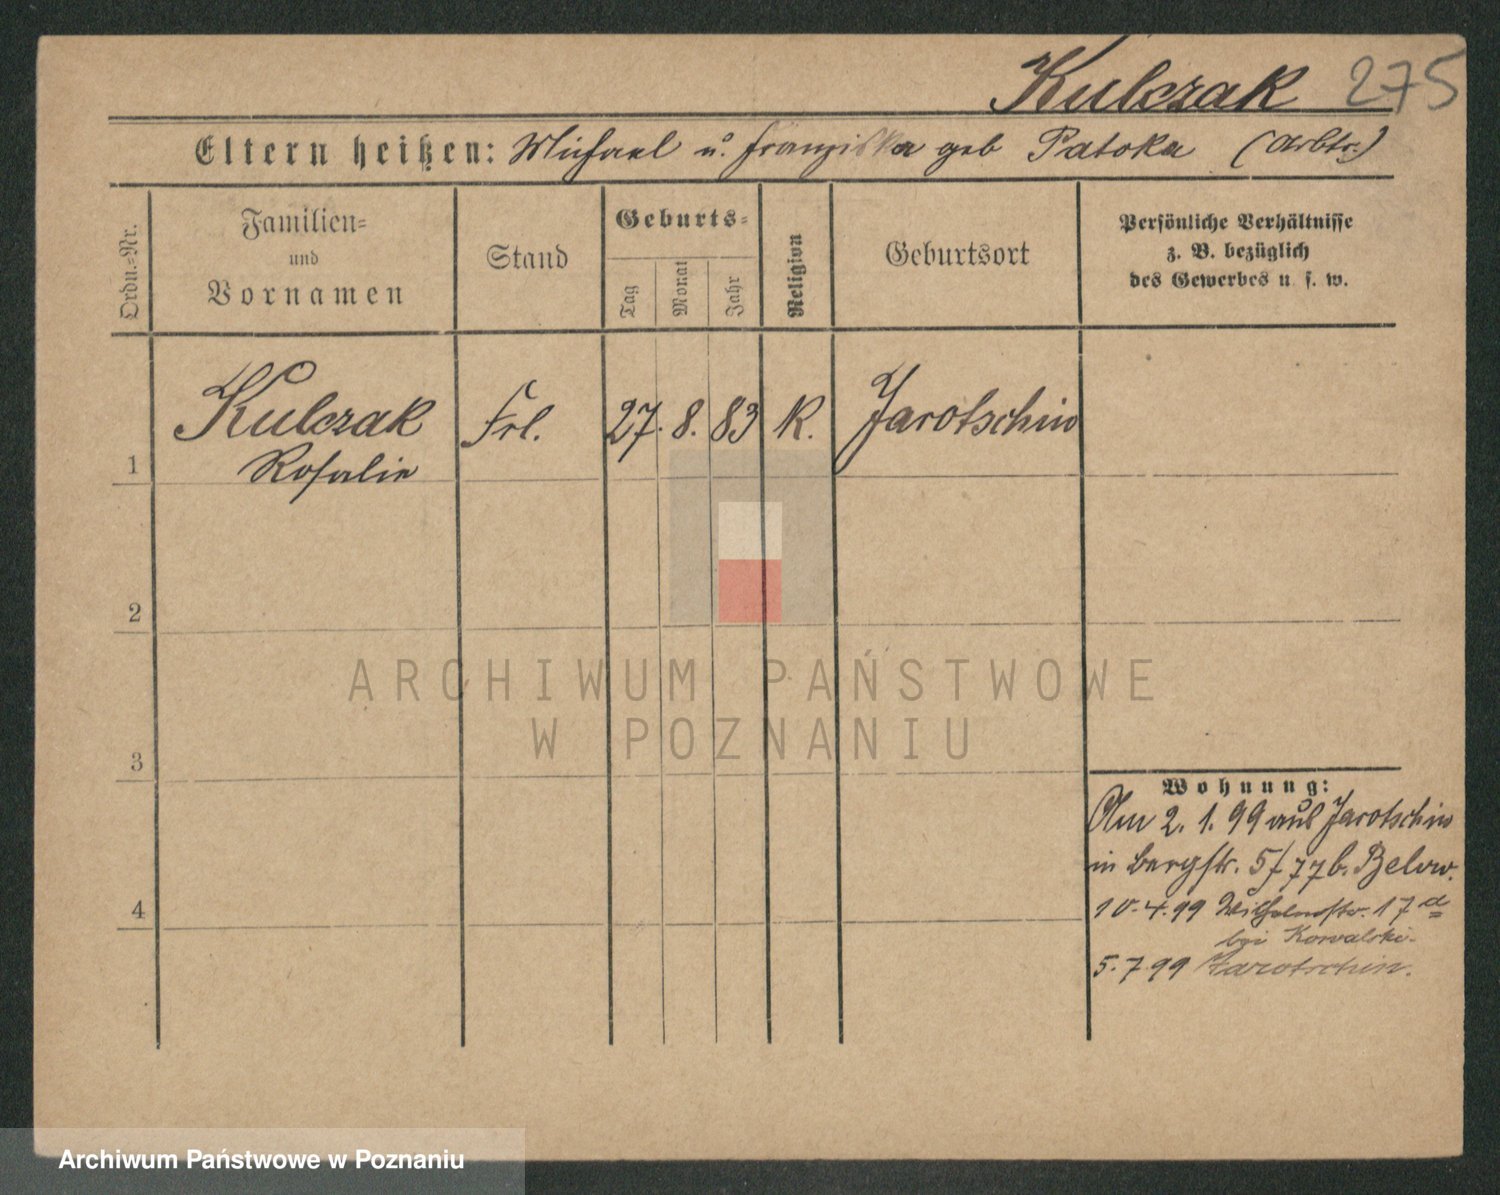 Kulczak 275
Eltern heißen: Michael u. Franziska geb Patoka (Arbtr.)
Ordn.-Nr.
Familien- und Vornamen
Stand
Geburts-
Tag
Monat
Jahr
Religion
Geburtsort
Persönliche Verhältnisse
z. B. bezüglich
des Gewerbes u. s. w.
1 Kulczak Frl. 27. 8. 83 K. Jarotschin
Rosalie
2
3
4
ARCHIWUM PAŃSTWOWE
W POZNANIU
Wohnung:
Am 2. 1. 99 aus Jarotschin
in Bergstr. 5/ 77 b. Below.
10.4.99 Wilhelmstr. 17 d
bei Kowalski.
5.7.99 Jarotschin.
Archiwum Państwowe w Poznaniu